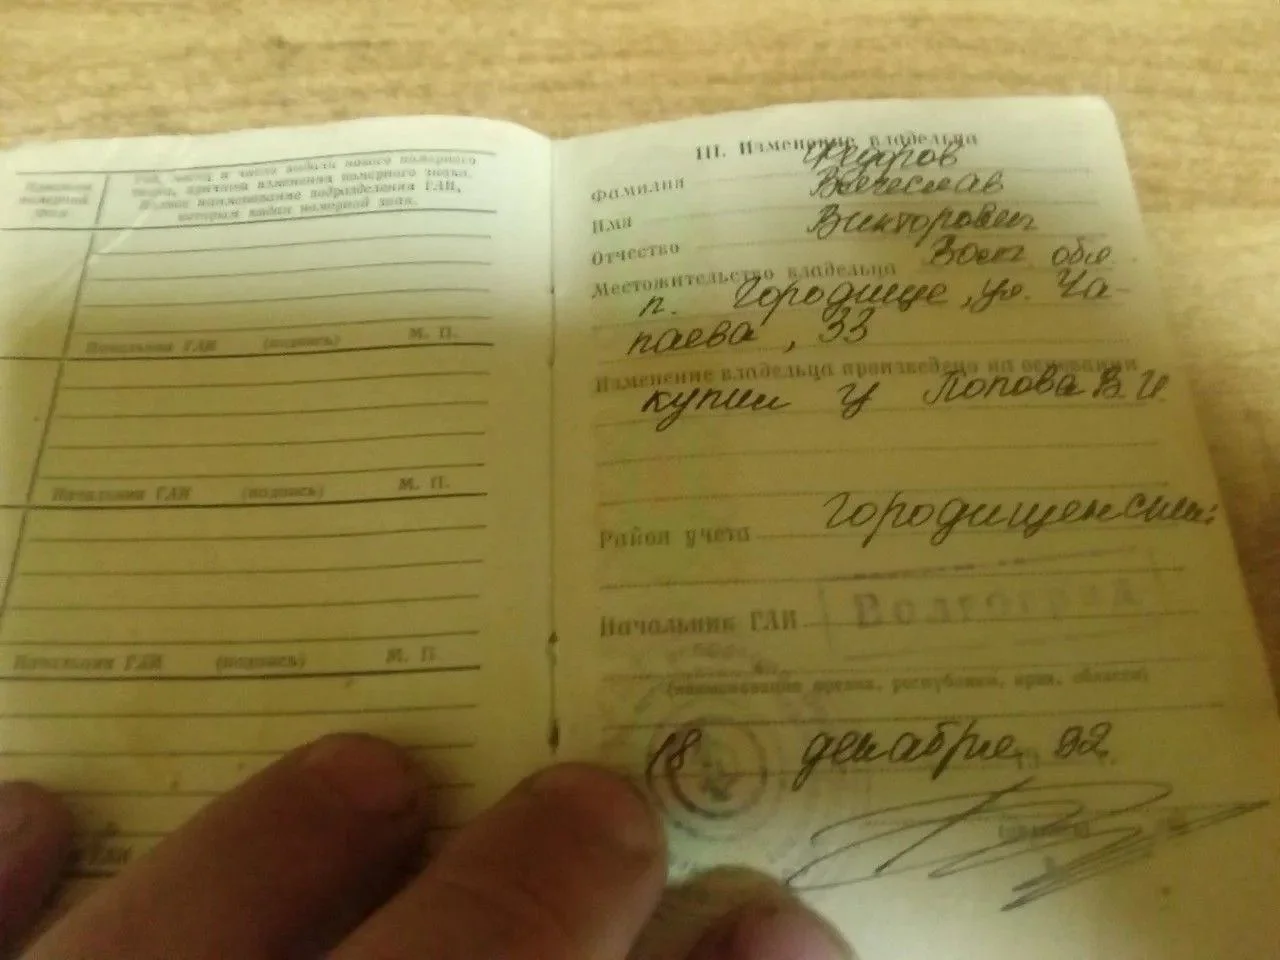 Год, месяц и число выдачи нового номерного
знака, причина изменения номерного знака.
Полное наименование подразделения ГАИ,
которым выдан номерной знак.
Начальник ГАИ (подпись) М. П.
Начальник ГАИ (подпись) М. П.
Начальник ГАИ (подпись) М. П.
ГАИ
III. Изменение владельца
Фамилия Федоров
Имя Вячеслав
Отчество Викторович
Местожительство владельца Волг. обл.
п. Городище, ул. Ча-
паева, 33
Изменение владельца произведено на основании
купил у Попова В. И.
Район учета Городищенский
Начальник ГАИ Волгоград
(наименование органа, республики, края, области)
18 декабря 92
(подпись)